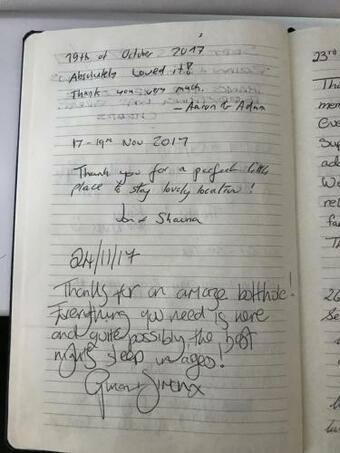 19th of October 2017
Absolutely Loved it!
Thank you very much.
– Aaron & Adam
17 - 19th Nov 2017
Thank you for a perfect little
place to stay lovely location!
Jon & Shauna
24/11/17
Thanks for an amazing bolthole!
Everything you need is here
and quite possibly the best
nights sleep in ages!
23rd
Tha
mem
Eve
Sup
add
We
rel
fa
Th
26
Se